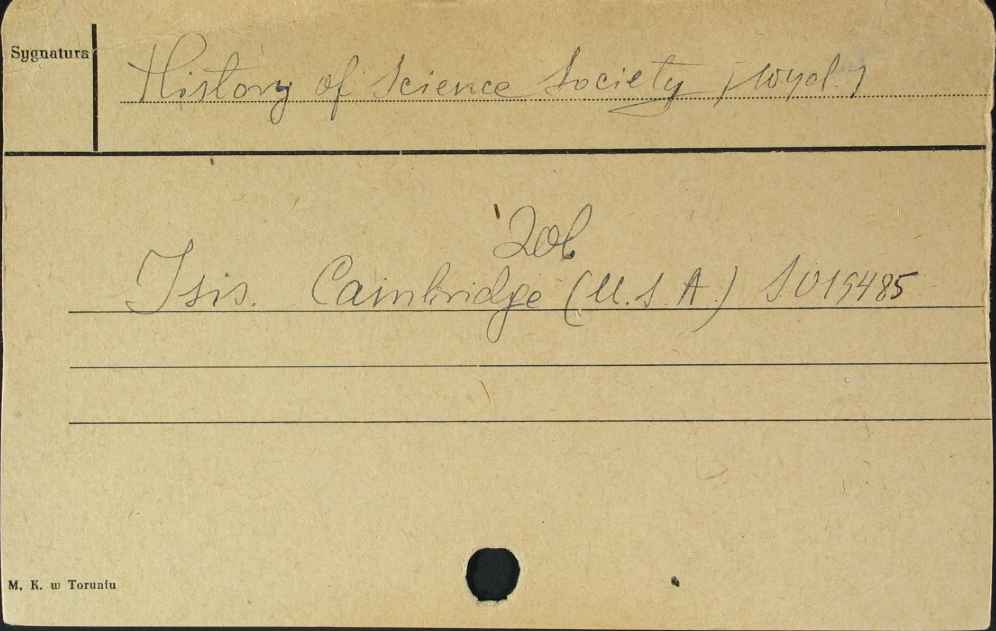 Sygnatura
History of Science Society /wyd./
Zob
Isis. Cambridge (U.S.A.) S 015485
M. K. w Toruniu